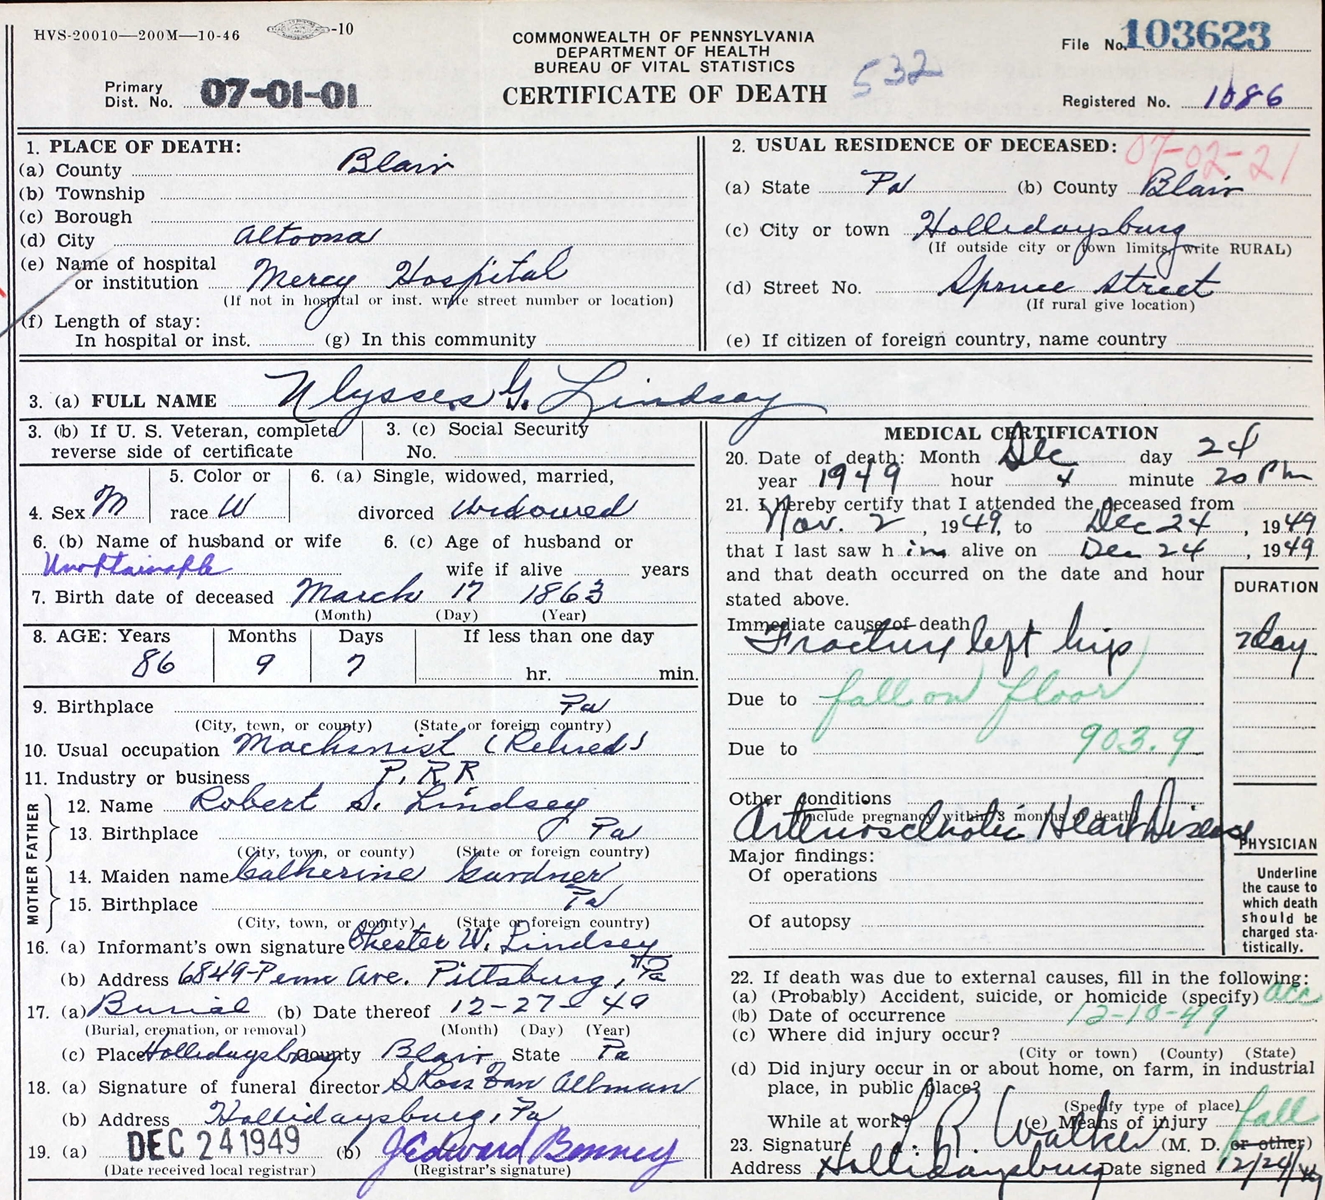 HVS-20010—200M—10-46 -10
COMMONWEALTH OF PENNSYLVANIA
DEPARTMENT OF HEALTH
BUREAU OF VITAL STATISTICS
CERTIFICATE OF DEATH
532
File No. 103623
Primary
Dist. No. 07-01-01
Registered No. 1086
1. PLACE OF DEATH:
(a) County Blair
(b) Township
(c) Borough
(d) City Altoona
(e) Name of hospital
or institution Mercy Hospital
(If not in hospital or inst. write street number or location)
(f) Length of stay:
In hospital or inst. (g) In this community
2. USUAL RESIDENCE OF DECEASED:
07-02-21
(a) State Pa (b) County Blair
(c) City or town Hollidaysburg
(If outside city or town limits, write RURAL)
(d) Street No. Spruce Street
(If rural give location)
(e) If citizen of foreign country, name country
3. (a) FULL NAME Ulysses G. Lindsay
3. (b) If U. S. Veteran, complete
reverse side of certificate
3. (c) Social Security
No.
4. Sex M
5. Color or
race W
6. (a) Single, widowed, married,
divorced Widowed
6. (b) Name of husband or wife
Unobtainable
6. (c) Age of husband or
wife if alive years
7. Birth date of deceased March 17 1863
(Month) (Day) (Year)
8. AGE: Years Months Days If less than one day
86 9 7 hr. min.
9. Birthplace Pa
(City, town, or county) (State or foreign country)
10. Usual occupation Machinist (Retired)
11. Industry or business P. R R
FATHER
12. Name Robert S. Lindsey
13. Birthplace Pa
(City, town, or county) (State or foreign country)
MOTHER
14. Maiden name Catherine Gardner
15. Birthplace Pa
(City, town, or county) (State or foreign country)
16. (a) Informant's own signature Chester W. Lindsey
(b) Address 6849-Penn Ave. Pittsburg, Pa
17. (a) Burial (b) Date thereof 12-27-49
(Burial, cremation, or removal) (Month) (Day) (Year)
(c) Place Hollidaysburg County Blair State Pa
18. (a) Signature of funeral director S Ross Van Allman
(b) Address Hollidaysburg, Pa
19. (a) DEC 24 1949 (b) J Edward Bonney
(Date received local registrar) (Registrar's signature)
MEDICAL CERTIFICATION
20. Date of death: Month Dec day 24
year 1949 hour 4 minute 20 Pm
21. I hereby certify that I attended the deceased from
Nov. 2, 1949, to Dec 24, 1949
that I last saw him alive on Dec 24, 1949
and that death occurred on the date and hour
stated above.
DURATION
Immediate cause of death
Fracture left hip day
Due to fall on floor
Due to 903.9
Other conditions
(Include pregnancy within 3 months of death)
Arteriosclerotic Heart Disease
Major findings:
Of operations
Of autopsy
PHYSICIAN
Underline
the cause to
which death
should be
charged sta-
tistically.
22. If death was due to external causes, fill in the following:
(a) (Probably) Accident, suicide, or homicide (specify) acc
(b) Date of occurrence 12-10-49
(c) Where did injury occur?
(City or town) (County) (State)
(d) Did injury occur in or about home, on farm, in industrial
place, in public place?
(Specify type of place)
While at work? (e) Means of injury fall
23. Signature R Walker (M. D. or other)
Address Hollidaysburg Date signed 12/24/49